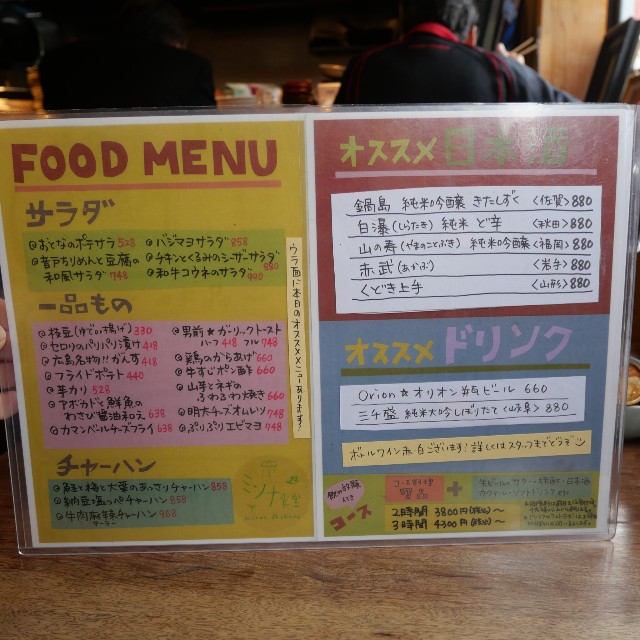 FOOD MENU
サラダ
おとなのポテサラ 528
バジマヨサラダ 858
岩下ちりめんと豆腐の
和風サラダ 748
チキンとくるみのシーザーサラダ 880
和牛コウネのサラダ 990
一品もの
枝豆(ゆでor揚げ) 330
セロリのパリパリ漬け 418
広島名物!!がんす 418
フライドポテト 440
芋カリ 528
アボカドと鮮魚の
わさび醤油和え 638
カマンベールチーズフライ 638
男前★ガーリックトースト
ハーフ 418 フル 748
鶏のからあげ 660
牛すじポン酢 660
山芋とネギの
ふわふわ焼き 660
明太チーズオムレツ 748
ぷりぷりエビマヨ 748
チャーハン
鮭と梅と大葉のあっさりチャーハン 858
納豆と塩っペチャーハン 858
牛肉麻辣チャーハン 968
マーラー
ウラ面に本日のオススメメニューあります!
ミソナ食堂
オススメ 日本酒
鍋島 純米吟醸 きたしずく <佐賀> 880
白瀑(しらたき) 純米 ど辛 <秋田> 880
山の寿(やまのことぶき) 純米吟醸 <福岡> 880
赤武(あかぶ) <岩手> 880
くどき上手 <山形> 880
オススメ ドリンク
Orion★オリオン生ビール 660
三千盛 純米大吟しぼりたて <岐阜> 880
ボトルワイン赤白ございます!詳しくはスタッフまでどうぞ
飲み放題
付き
コース
コース料理
+
2時間 3800円(税込)〜
3時間 4300円(税込)〜